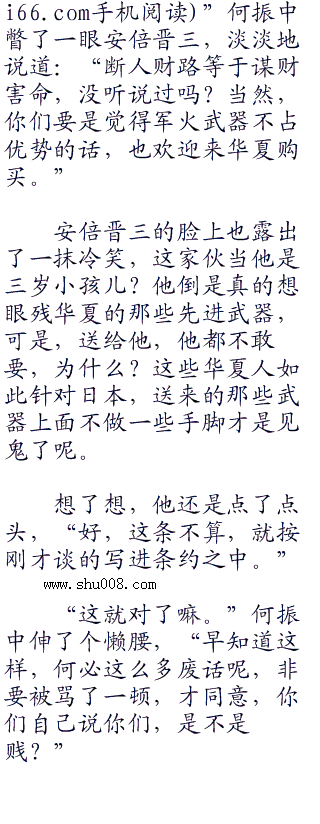 i66.com手机阅读)”何振中
瞥了一眼安倍晋三，淡淡地
说道：“断人财路等于谋财
害命，没听说过吗？当然，
你们要是觉得军火武器不占
优势的话，也欢迎来华夏购
买。”
安倍晋三的脸上也露出
了一抹冷笑，这家伙当他是
三岁小孩儿？他倒是真的想
眼残华夏的那些先进武器，
可是，送给他，他都不敢
要，为什么？这些华夏人如
此针对日本，送来的那些武
器上面不做一些手脚才是见
鬼了呢。
想了想，他还是点了点
头，“好，这条不算，就按
刚才谈的写进条约之中。”
www.shu008.com
“这就对了嘛。”何振
中伸了个懒腰，“早知道这
样，何必这么多废话呢，非
要被骂了一顿，才同意，你
们自己说你们，是不是
贱？”